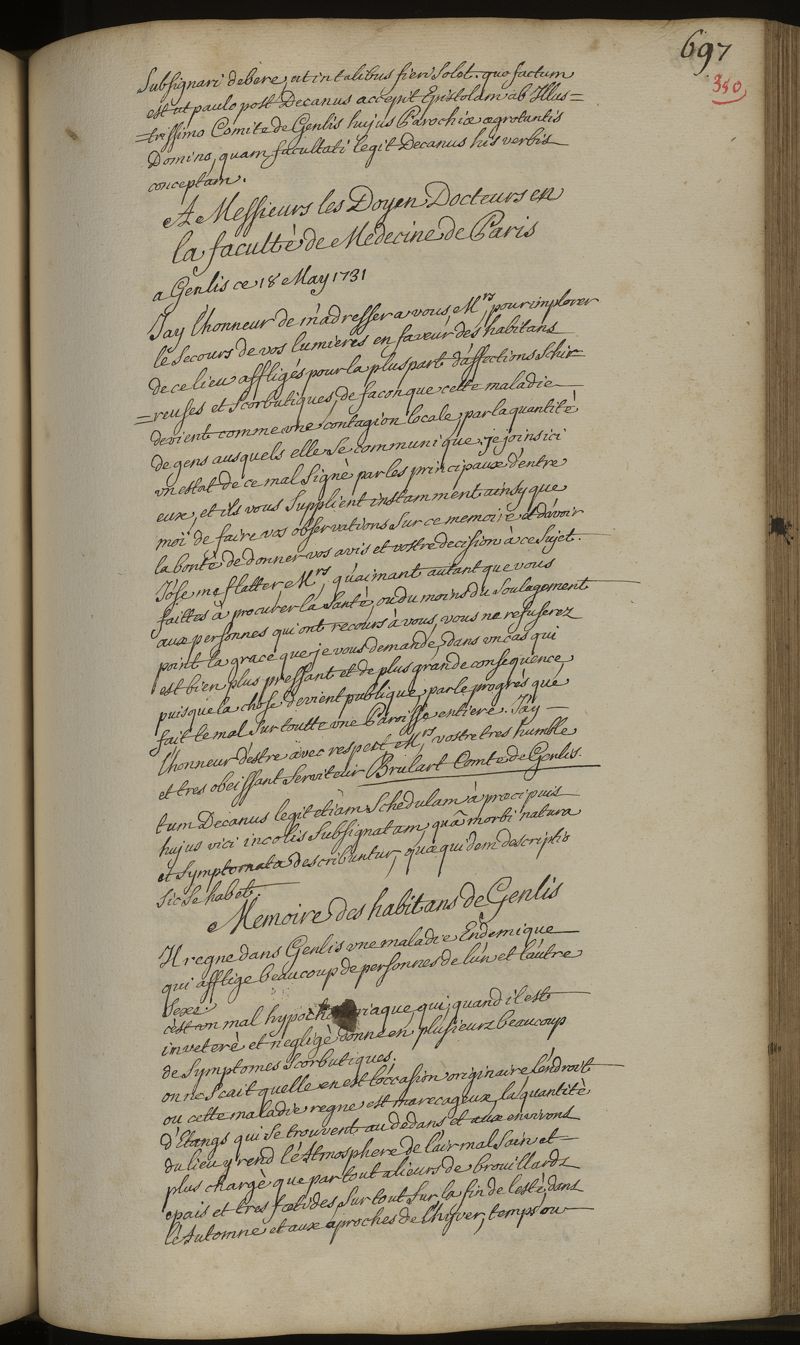 697
350
Subsignari debere, ut in talibus fieri solet. quo factum
est ut paulo post Decanus accepit Epistolam ab Illus=
=trissimo Comite de Genlis hujus Parochiæ ægrotantis
Domino, quam facultati legit Decanus his verbis
conceptam.
A Messieurs les Doyen Docteurs en
la faculté de Medecine de Paris
a Genlis ce 18 May 1731
J'ay l'honneur de m'adresser a vous Mrs, pour implorer
le secours de vos lumieres en faveur des habitans
de ce lieu affligés pour la pluspart d'affections Schir=
=reuses et Scorbutiques, de facon que cette maladie
devient comme une contagion locale, par la quantité
de gens ausquels elle se communique, je joins ici
un estat de ce mal signé par les principaux d'entre
eux, et ils vous supplient instamment ainsy que
moi de faire vos observations sur ce memoire et d'avoir
la bonté de donner vos avis et vostre decision à ce sujet.
J'ose me flatter Mrs, qu'aimant autant que vous
faittes à procurer la Santé, ou du moins du Soulagement
aux personnes qui ont recours à vous, vous ne refuserez
point la grace que je vous demande, dans un cas qui
est bien plus pressant et de plus grande consequence
puisque la chose devient publique, par le progrés que
fait le mal sur toutte une Paroisse entiere. J'ay
l'honneur d'estre avec respect Mrs, vostre tres humble
et tres obeissant Serviteur Brulart Comte de Genlis.
tum Decanus legit etiàm Schedulam à præcipuis
hujus vici incolis Subsignatam, quâ morbi natura
et Symptomata describuntur, quæ quidem descriptio
sic se habet.
Memoire des habitans de Genlis
Il regne dans Genlis une maladie Endemique
qui afflige beaucoup de personnes de l'un et l'autre
Sexe.
c'est un mal hypochondriaque qui, quand il est
inveteré et negligé donne en plusieurs beaucoup
de Symptomes Scorbutiques.
on ne Scait quelle en est l'occasion originaire l'endroit
ou cette maladie regne est marecageux, la quantité
d'Etangs qui se trouvent au dedans et aux environs
du lieu y rend l'Atmosphere de l'air mal sain et
plus chargé que par tout alieurs de brouillards
epais et tres fœtides sur tout sur la fin de l'esté, dans
l'Automne et aux aproches de l'hyver, temps ou